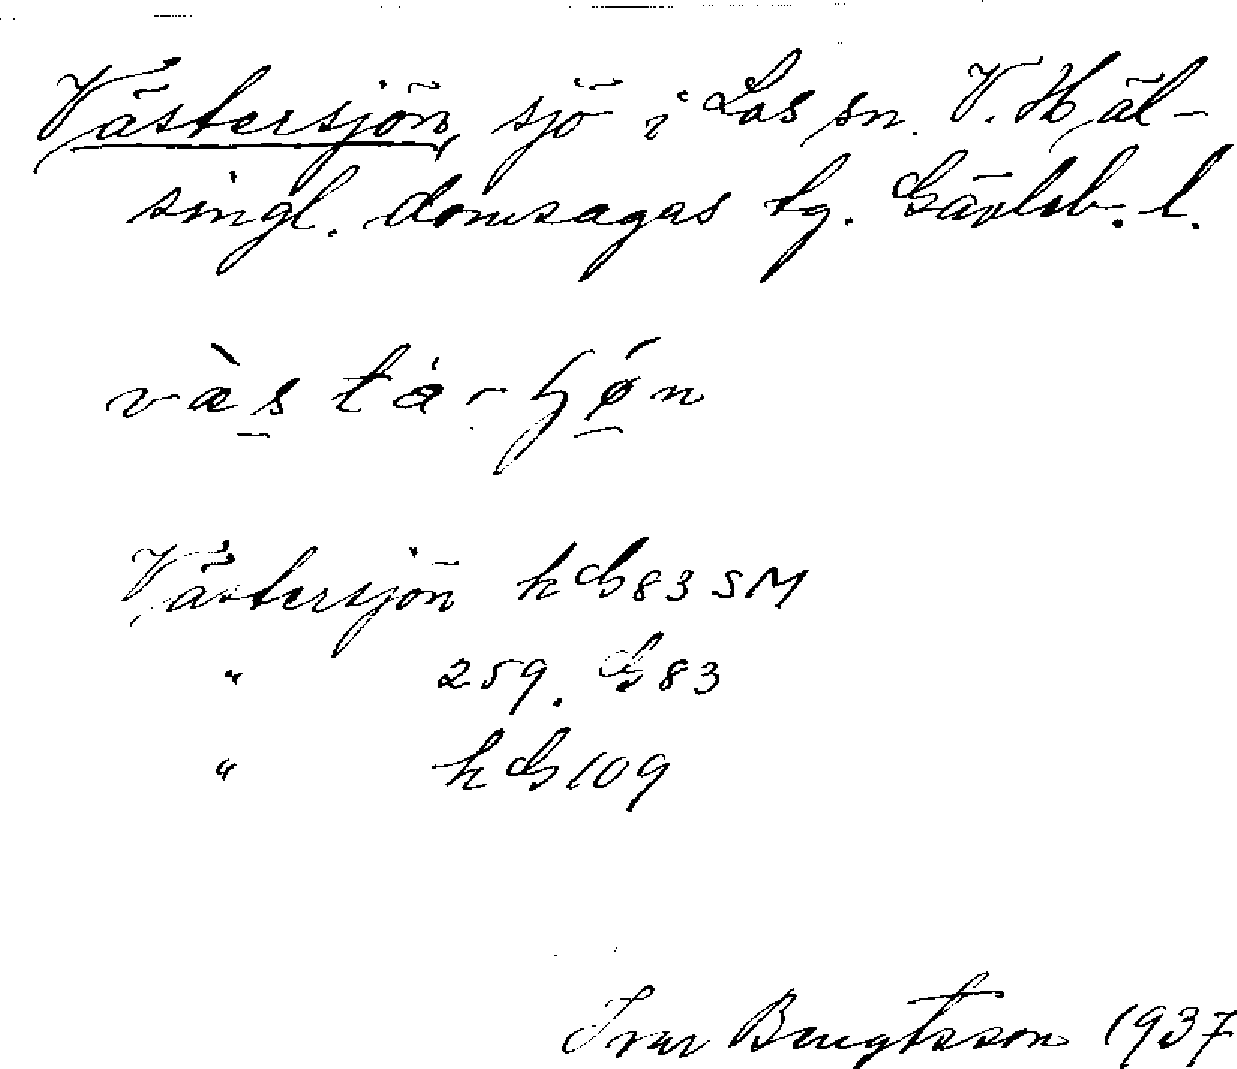 Västersjön, sjö i Los sn. V. Häl-
singl. domsagas tg. Gävleb. l.
Västersjön k G83 SM
" 259. G83
" k G109
Ivar Bengtsson 1937